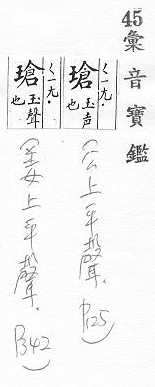 45彙音寶鑑
ㄑㄧㄤ．
瑲玉声也
（公上平聲．P125）
ㄑㄧㄤ．
瑲玉聲也
（姜上平聲．P342）